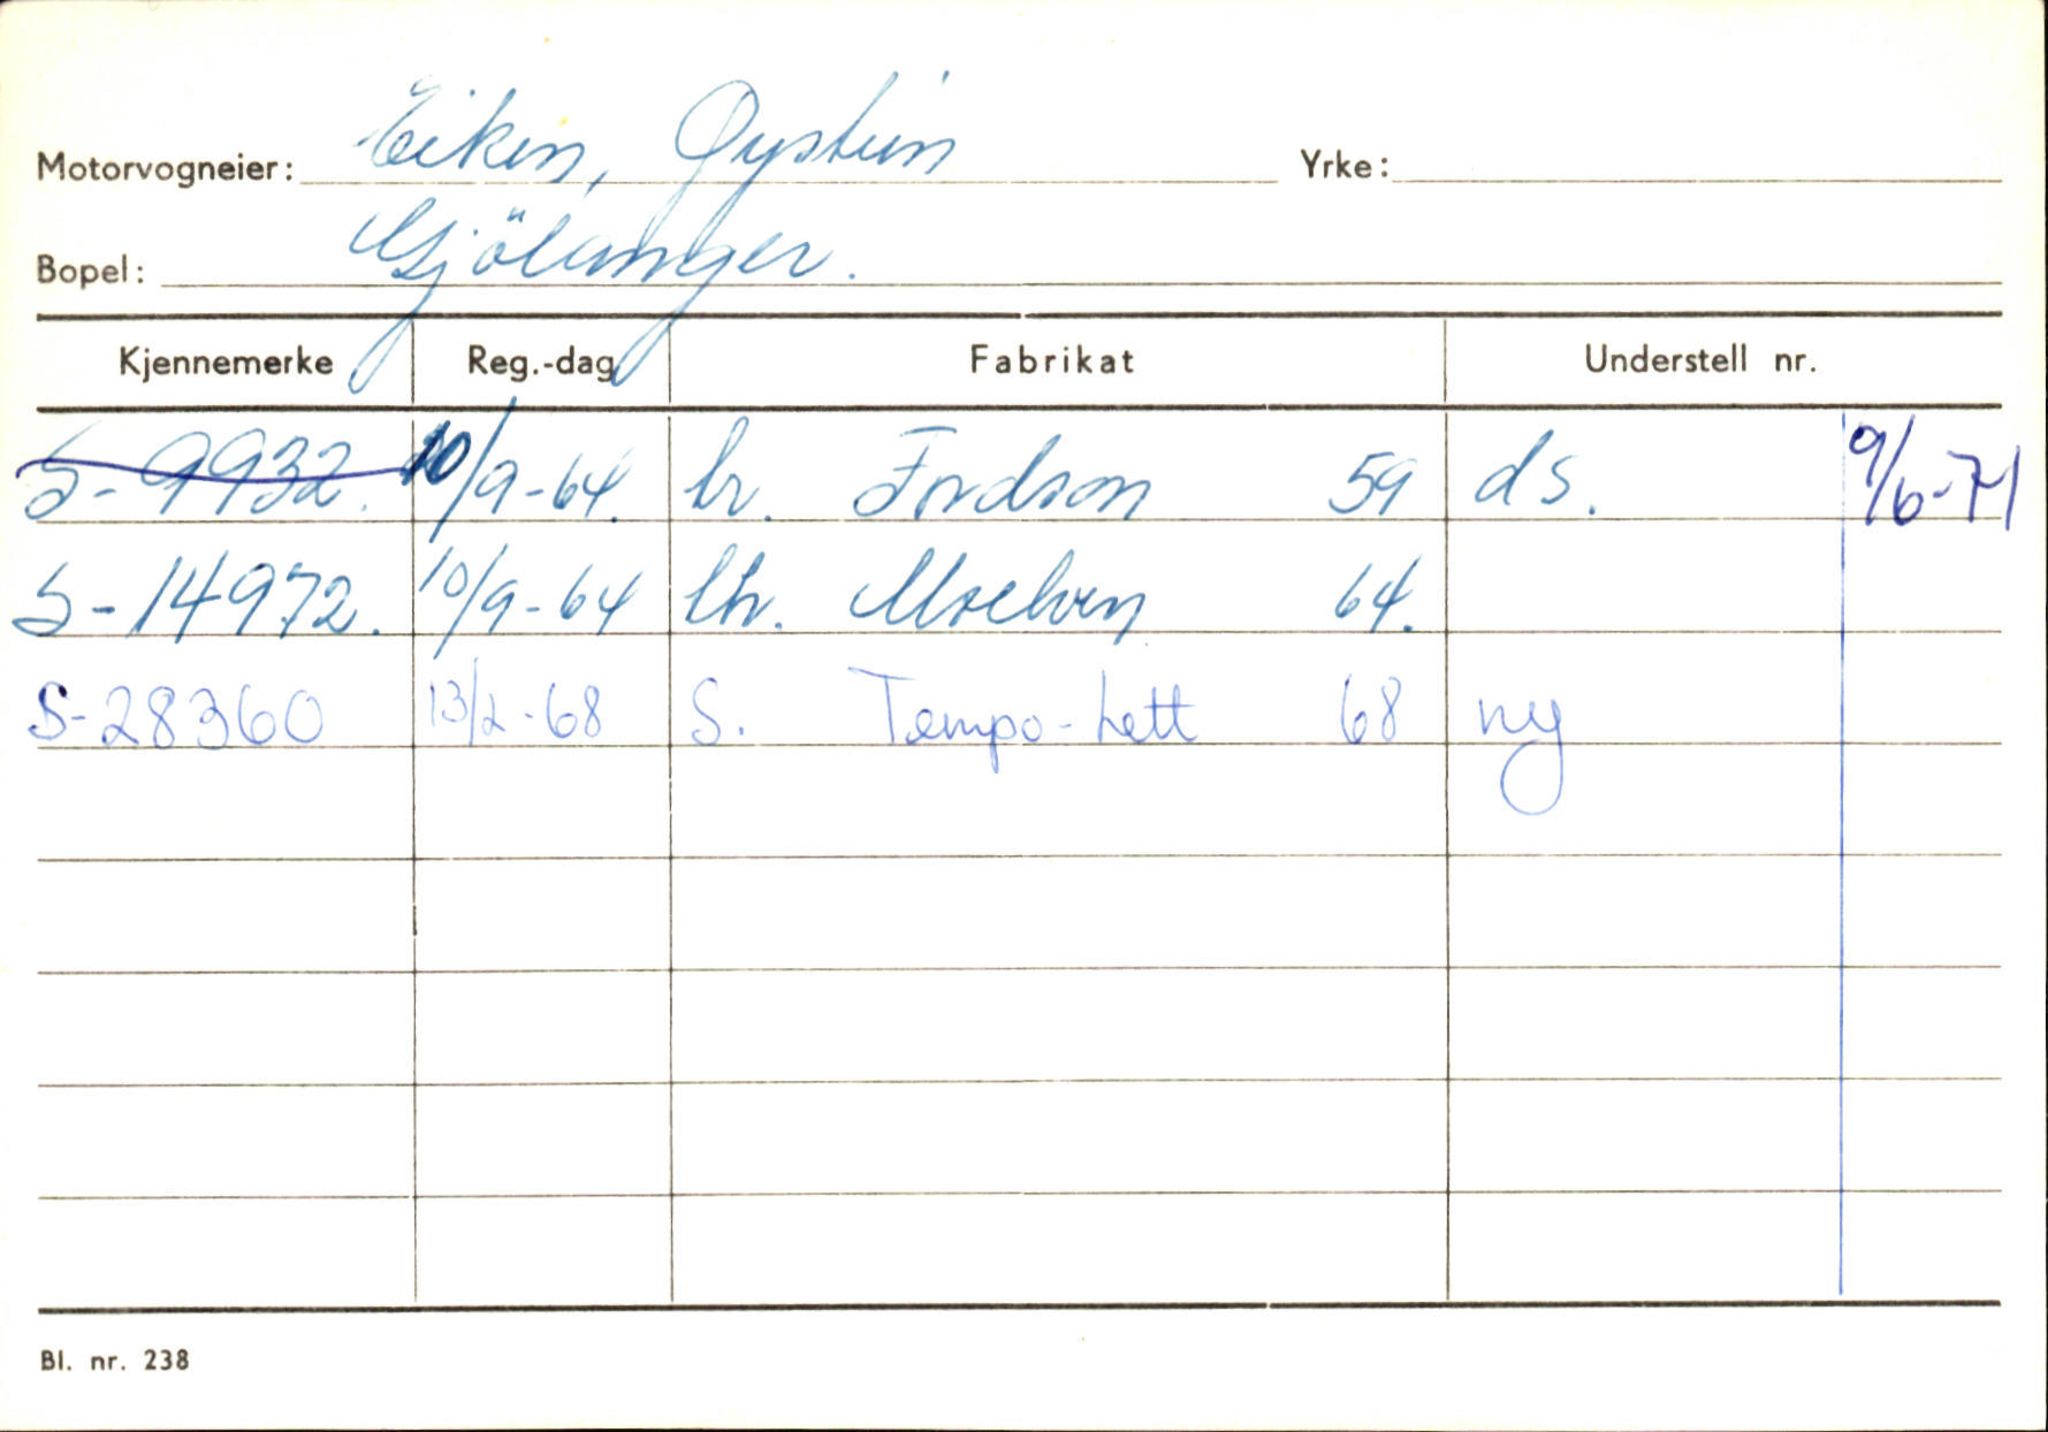 Motorvogneier: Eiken, Øystein Yrke:
Bopel: Gjölanger.
Kjennemerke Reg.-dag Fabrikat Understell nr.
S-9932. 10/9-64. tr. Fordson 59 ds. 9/6-71
S-14972. 10/9-64 thr. Moelven 64.
S-28360 13/2-68 S. Tempo-Lett 68 ny
Bl. nr. 238